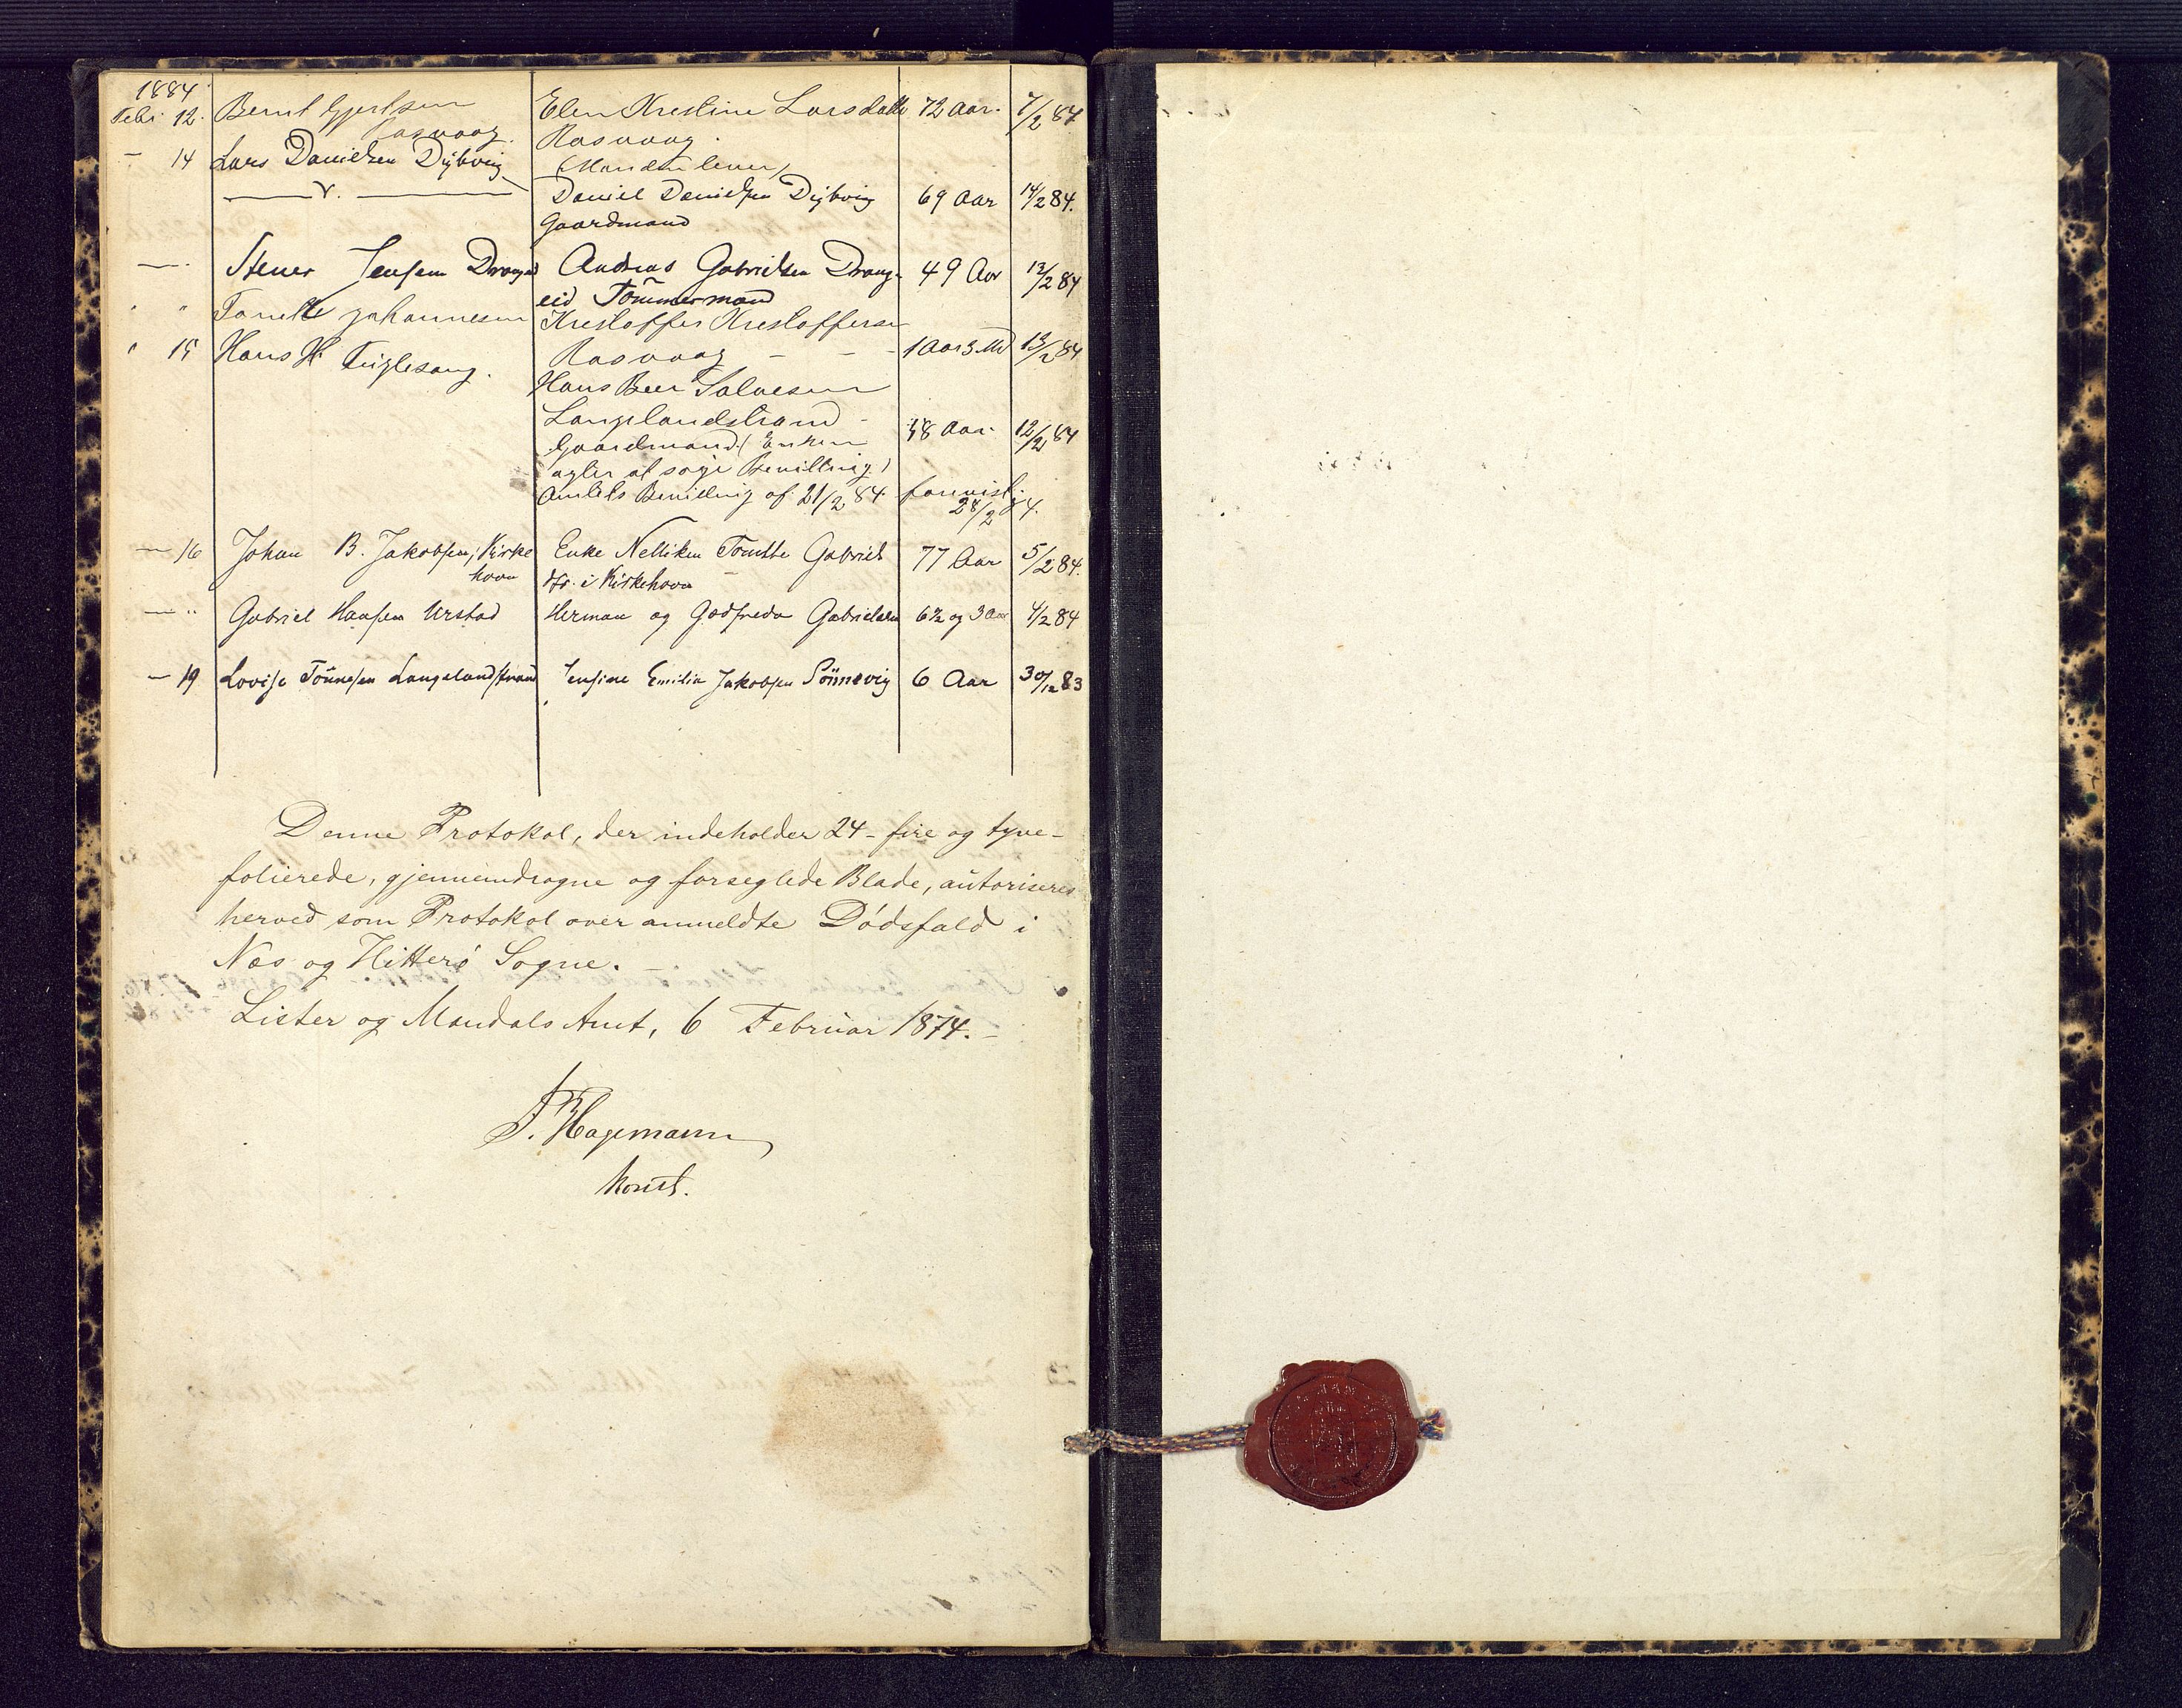 1884
Febr. 12. Bernt Gjertsen Elen Kristine Larsdatter 72 Aar. 7/2 84
Rasvaag. Rasvaag.
— 14 Lars Danielsen Dybvig (Manden lever)
— v. — Daniel Danielsen Dybvig 69 Aar 14/2 84.
Gaardmand
— . Stener Jensen Drang Andreas Gabrielsen Drang- 49 Aar 13/2 84
eid Tömmermand
" " Tonette Johannesen Kristoffer Kristoffersen
" 15 Hans H. Fuglesang. Rasvaag — — - 1 Aar 3 Md 13/2 84
Hans Beer Salvesen
Langelandstrand - 48 Aar. 12/2 84
Gaardmand (Enken
agter at søge Bevilling)
Amtets Bevilling af 21/2 84. forevist
28/2 84.
— 16 Johan B. Jakobsen, Kirke Enke Nelliken Tonette Gabriels 77 Aar 5/2 84.
havn dtr. i Kirkehavn
— " Gabriel Hansen Urstad Herman og Godfreda Gabrielsen 6½ og 3 Aar 4/2 84
— 19 Lovise Tönnesen Langelandstrand Jensine Emilie Jakobsen Sönnevig 6 Aar 30/12 83
Denne Protokol, der indeholder 24 - fire og tyve -
folierede, gjennemdragne og forseglede Blade, autoriseres
herved som Protokol over anmeldte Dödsfald i
Næs og Hitterö Sogne. —
Lister og Mandals Amt, 6 Februar 1874. –
Hagemann
konst.